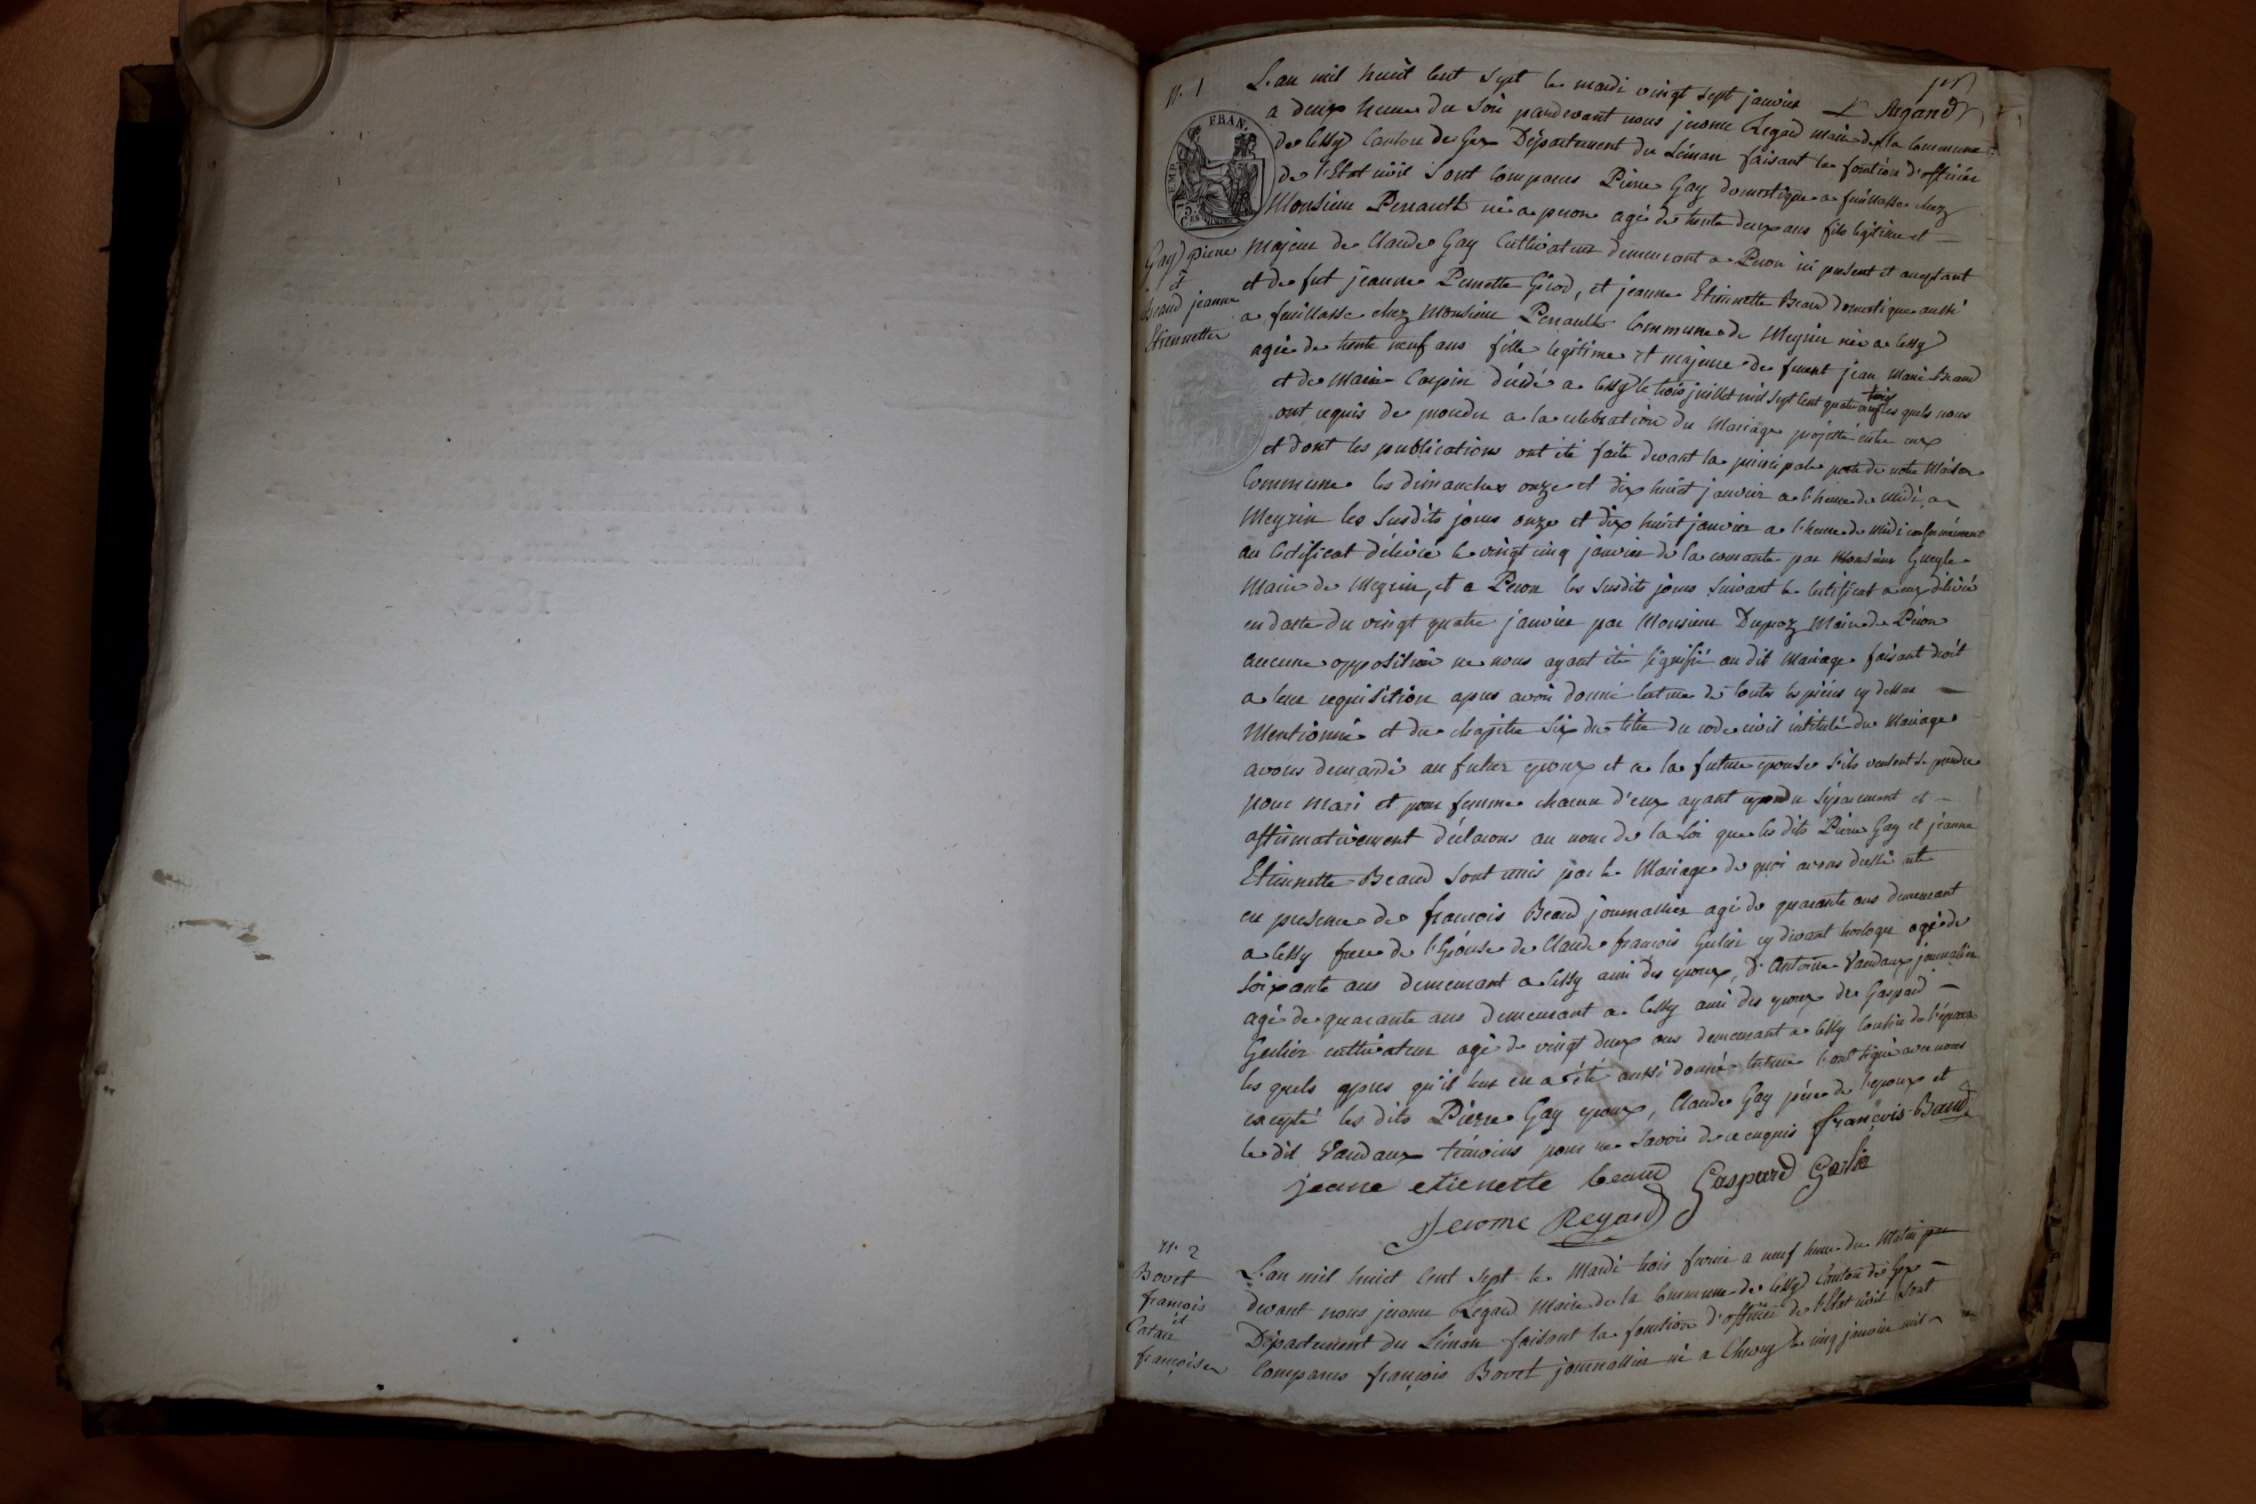 N. 1
L'an mil huit cent sept le mardi vingt sept janvier
Argand
a deux heure du soir pardevant nous jerome Regard maire de la Commune
de Cessy Canton de Gex Département du Léman faisant la fontion d'officier
de l'Etat civil sont comparus Pierre Gay domestique a feuillasse chez
Monsieur Perrault né a peron agé de trente deux ans fils legitime et
Majeur de Claude Gay Cultivateur demeurant a Peron ici present et aceptant
et de fut jeanne Pernette Girod, et jeanne Etiennette Beaud domestique aussi
a feuillasse chez Monsieur Perrault Commune de Meyrin née a Cessy
agée de trente neuf ans fille legitime et majeure de feuent jean Marie Beaud
et de Marie Carpin décédé a Cessy le trois juillet mil sept Cent quatre vingt trois les quels nous
ont requis de proceder a la celebration du Mariage projetté entre eux
et dont les publications ont été faite devant la principale porte de notre Maison
Commune les dimanches onze et dix huit janvier a l'heure de midi, a
Meyrin les susdits jours onze et dix huit janvier a l'heure de midi conformément
au certificat délivré le vingt cinq janvier de la courante par Monsieur
Maire de Meyrin, et a Peron les susdits jours suivant le certificat a eux délivré
en datte du vingt quatre janvier par Monsieur Duproz Maire de Péron
aucune opposition ne nous ayant été signifié au dit Mariage faisant droit
a leur requisition apres avoir donné lecture de toutes les pieces cy dessus
Mentionné et du chapitre six du titre du code civil intitulé du Mariage
avons demandé au futur epoux et a la future epouse s'ils veulent se prendre
pour mari et pour femme chacun d'eux ayant repondu séparement et
affirmativement déclarons au nom de la loi que les dits Pierre Gay et jeanne
Etiennette Beaud sont unis par le Mariage de quoi avons dressé acte
en presence de francois Beaud journallier agé de quarante ans demeurant
a Cessy frere de l'Epouse de Claude francois Gerlier cy divant horloger agé de
soixante ans demeurant a Cessy ami des epoux, d'Antoine Vandaux journallier
agé de quarante ans demeurant a Cessy ami des epoux de Gaspard
Gerlier cultivateur agé de vingt deux ans demeurant a Cessy Cousin de l'épouse
les quels apres qu'il leur en a été aussi donné lecture l'ont signé avec nous
excepté les dits Pierre Gay epoux, Claude Gay père de l'epoux et
le dit Vandaux témoins pour ne savoir de ce enquis françois Beaud
jeanne etienette beaud Gaspard Gerlier
Jerome Regard
Gay pierre
et
Beaud jeanne
Etiennette
FRAN.
EMP.
N. 2
Bovet
francois
et
françoise
L'an mil huit cent sept le Mardi trois fevrier a neuf heure du Matin par
devant nous jerome Regard Maire de la Commune de Cessy Canton de Gex
Département du Léman faisant la fonction d'officier de l'Etat civil sont
Comparus françois Bovet journallier né a Chevry le cinq janvier mil